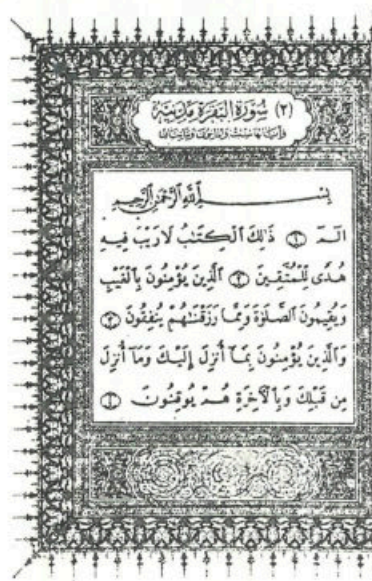 (٢) سُورَةُ البَقَرَةِ مَدَنِيَّة
وَآيَاتُهَا سِتٌّ وَثَمَانُونَ وَمِائَتَانِ
بِسْمِ اللَّهِ الرَّحْمَٰنِ الرَّحِيمِ
الٓمٓ ١ ذَٰلِكَ الْكِتَٰبُ لَا رَيْبَ فِيهِ
هُدًى لِّلْمُتَّقِينَ ٢ الَّذِينَ يُؤْمِنُونَ بِالْغَيْبِ
وَيُقِيمُونَ الصَّلَوٰةَ وَمِمَّا رَزَقْنَٰهُمْ يُنفِقُونَ ٣
وَالَّذِينَ يُؤْمِنُونَ بِمَآ أُنزِلَ إِلَيْكَ وَمَآ أُنزِلَ
مِن قَبْلِكَ وَبِالْأَخِرَةِ هُمْ يُوقِنُونَ ٤